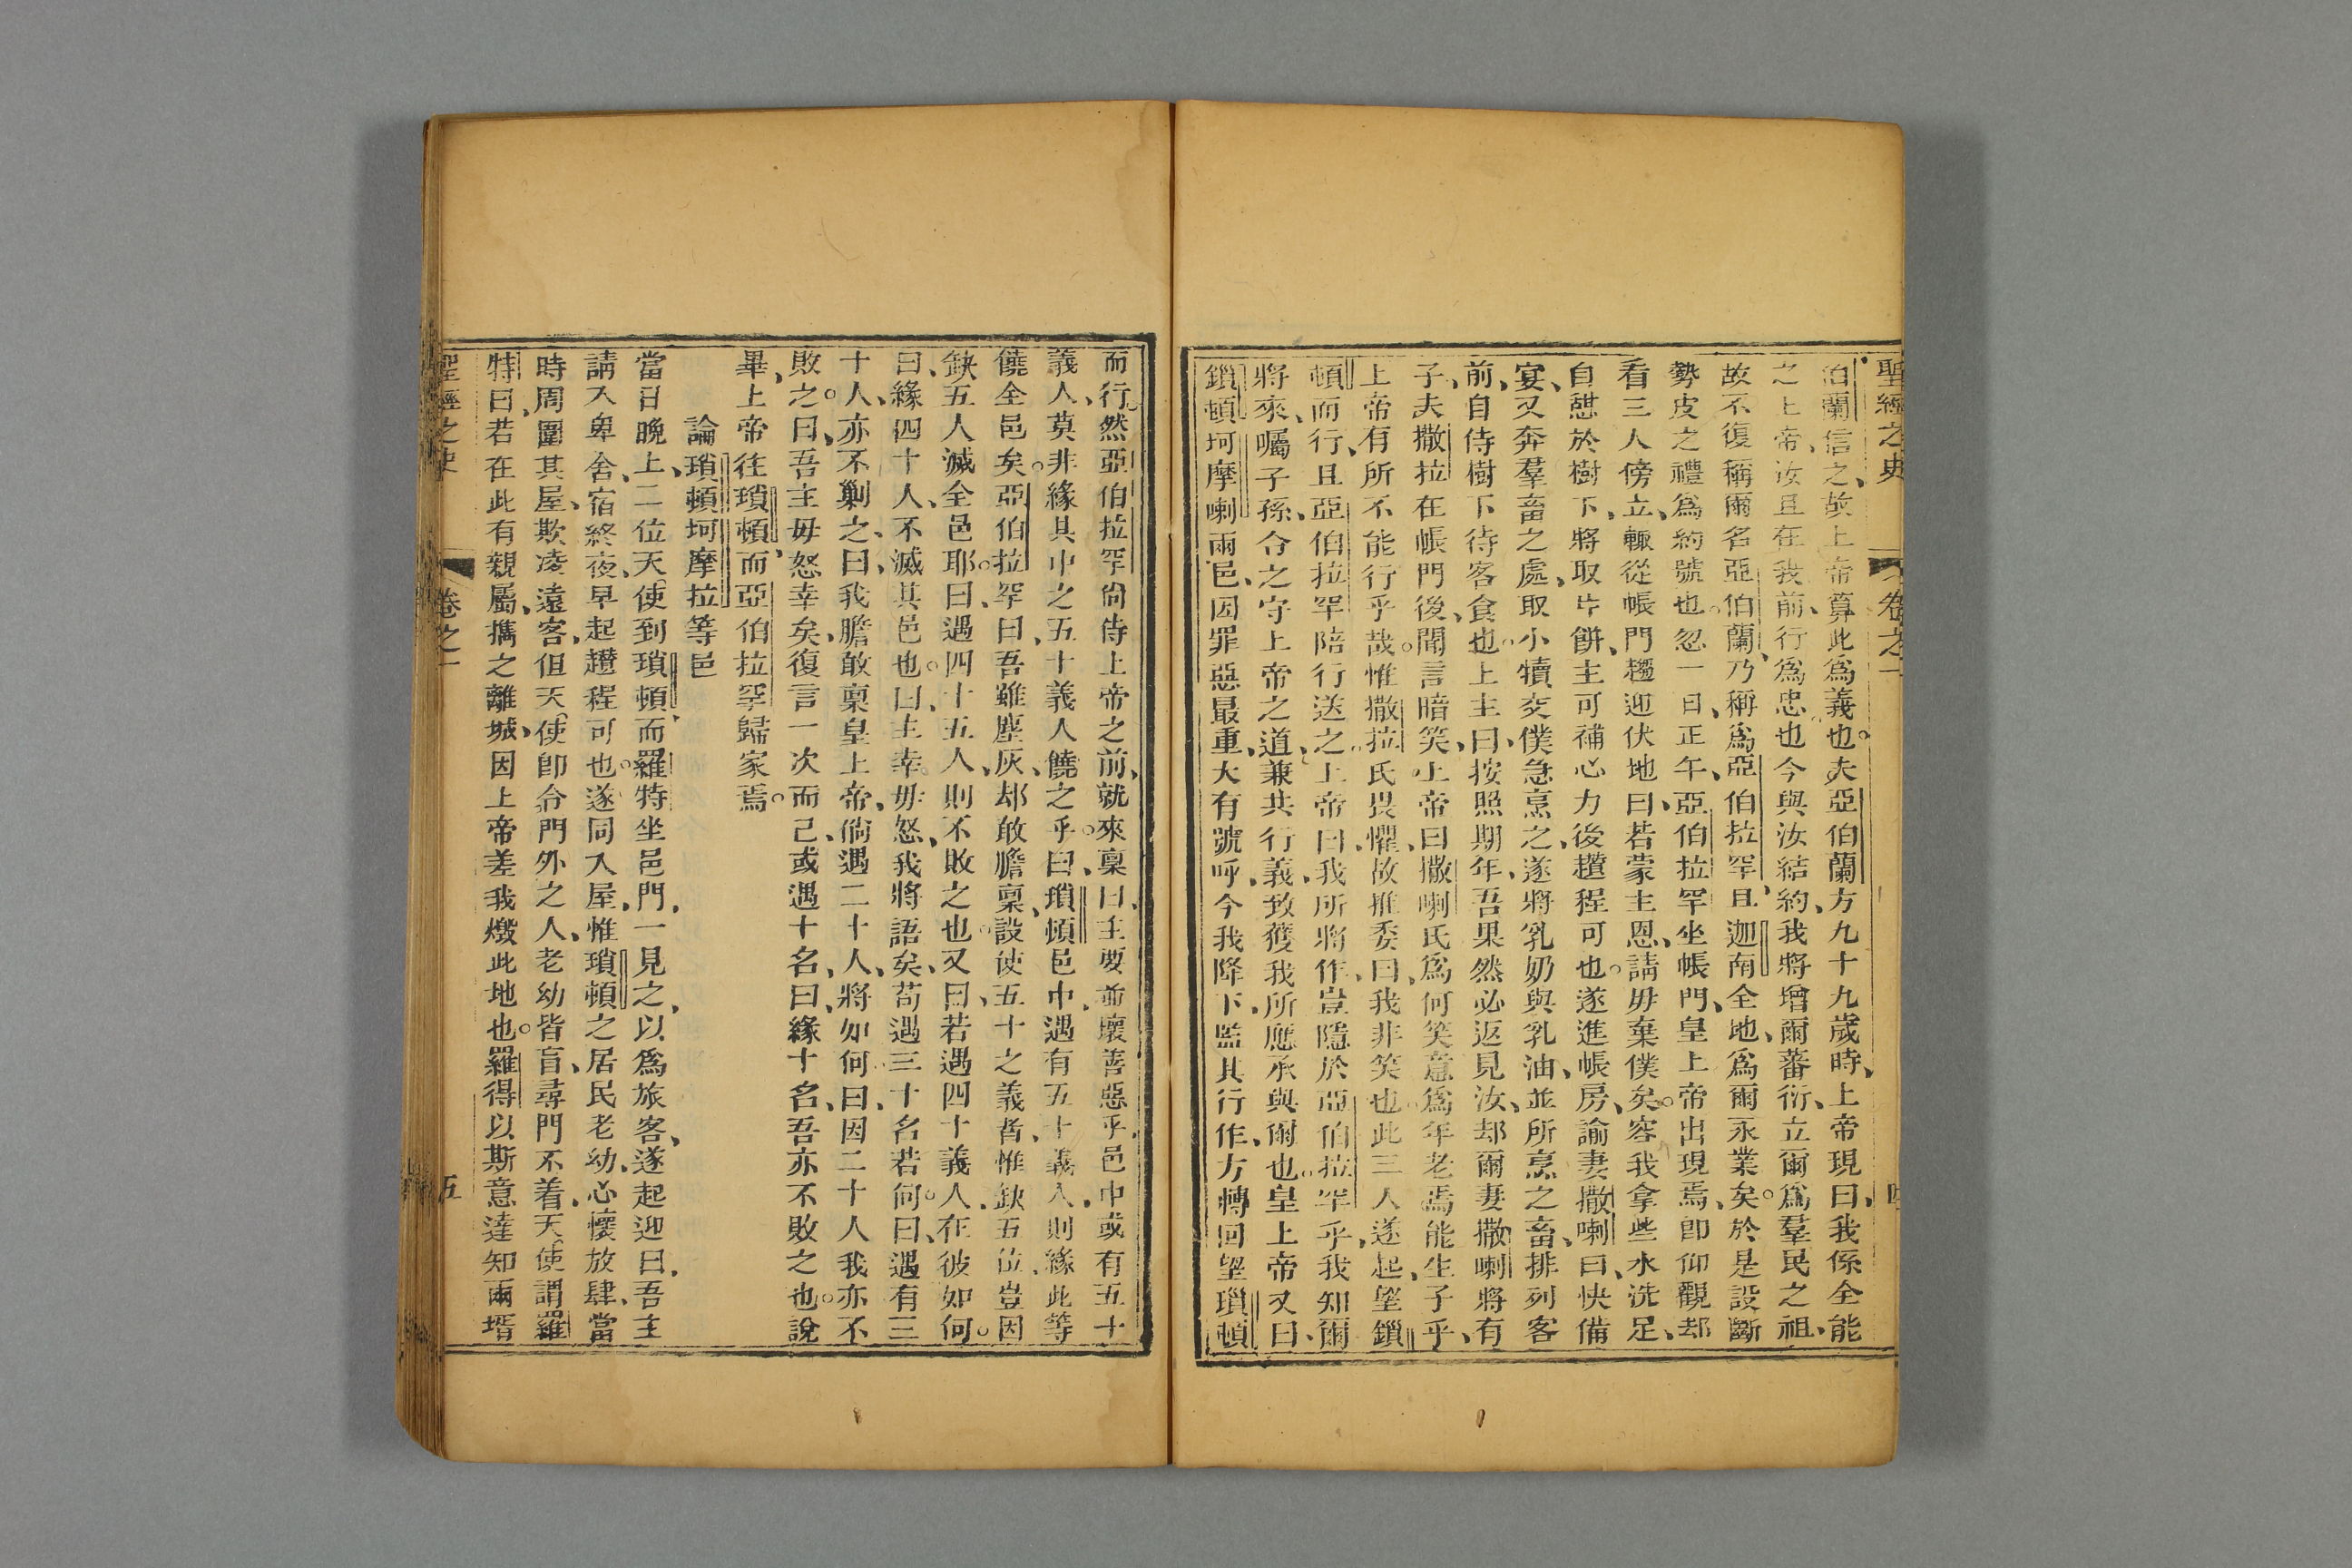 聖經之史 卷之一 四
伯蘭信之、故上帝算此爲義也。夫亞伯蘭方九十九歲時、上帝現曰、我係全能
之上帝、汝且在我前、行爲忠也。今與汝結約、我將增爾蕃衍、立爾爲羣民之祖、
故不復稱爾名亞伯蘭、乃稱爲亞伯拉罕、且迦南全地、爲爾永業矣。於是設斷
勢皮之禮、爲約號也。忽一日、正午、亞伯拉罕坐帳門、皇上帝出現焉、卽仰觀却
看三人傍立、輙從帳門趨迎伏地曰、若蒙主恩、請毋棄僕矣。容我拿些水洗足、
自憇於樹下、將取片餅、主可補心力、後趲程可也。遂進帳房、諭妻撒喇曰、快備
宴、又奔羣畜之處、取小犢交僕急烹之、遂將乳奶與乳油、並所烹之畜、排列客
前、自侍樹下待客食也。上主曰、按照期年、吾果然必返見汝、却爾妻撒喇將有
子、夫撒拉在帳門後、聞言暗笑、上帝曰、撒喇氏爲何笑、意爲年老焉能生子乎、
上帝有所不能行乎哉。惟撒拉氏畏懼、故推委曰、我非笑也。此三人遂起、望鎖
頓而行、且亞伯拉罕陪行送之。上帝曰、我所將作、豈隱於亞伯拉罕乎、我知爾
將來、囑子孫、令之守上帝之道、兼共行義、致獲我所應承與爾也。皇上帝又曰、
鎖頓坷摩喇兩邑、因罪惡最重、大有號呼、今我降下、監其行作、方轉回望瑣頓
而行。然亞伯拉罕尙侍上帝之前、就來稟曰、主要並壞善惡乎、邑中或有五十
義人、莫非緣其中之五十義人饒之乎。曰、瑣頓邑中、遇有五十義人、則緣此等
饒全邑矣。亞伯拉罕曰、吾雖塵灰、却敢膽稟、設使五十之義者、惟缺五位、豈因
缺五人滅全邑耶。曰、遇四十五人、則不敗之也。又曰、若遇四十義人、在彼如何。
曰、緣四十人、不滅其邑也。曰、主幸毋怒、我將語矣、苟遇三十名若何。曰、遇有三
十人、亦不剿之、曰、我膽敢稟皇上帝、倘遇二十人、將如何、曰、因二十人我亦不
敗之。曰、吾主毋怒幸矣、復言一次而已、或遇十名、曰、緣十名、吾亦不敗之也。說
畢、上帝往瑣頓、而亞伯拉罕歸家焉。
論瑣頓坷摩拉等邑
當日晚上、二位天使到瑣頓、而羅特坐邑門、一見之、以爲旅客、遂起迎曰、吾主
請入卑舍、宿終夜、早起趲程可也。遂同入屋、惟瑣頓之居民老幼、心懷放肆、當
時周圍其屋、欺凌遠客、但天使卽令門外之人、老幼皆盲、尋門不着、天使謂羅
特曰、若在此有親屬、攜之離城、因上帝差我燬此地也。羅得以斯意達知兩壻
聖經之史 卷之一 五